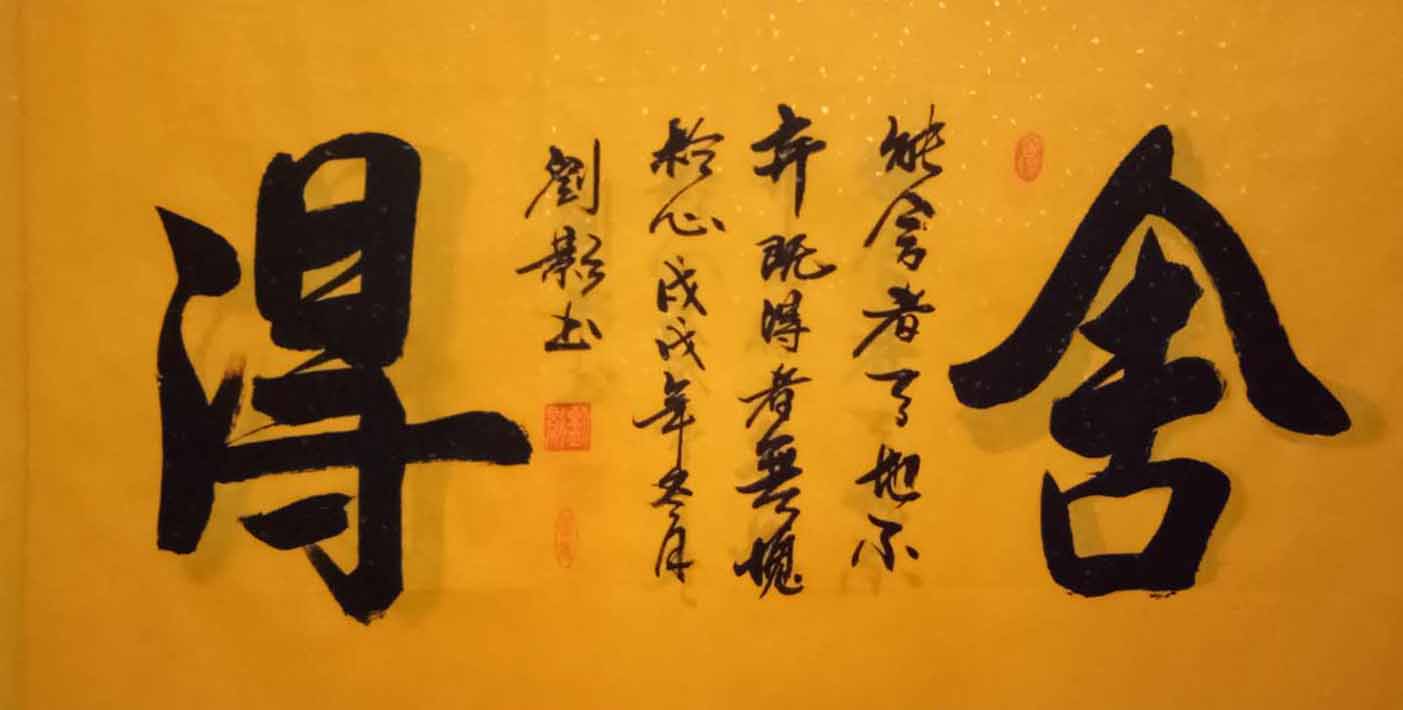 舍
能舍者天地不
弃既得者無愧
於心戊戌年冬月
劉影书
得